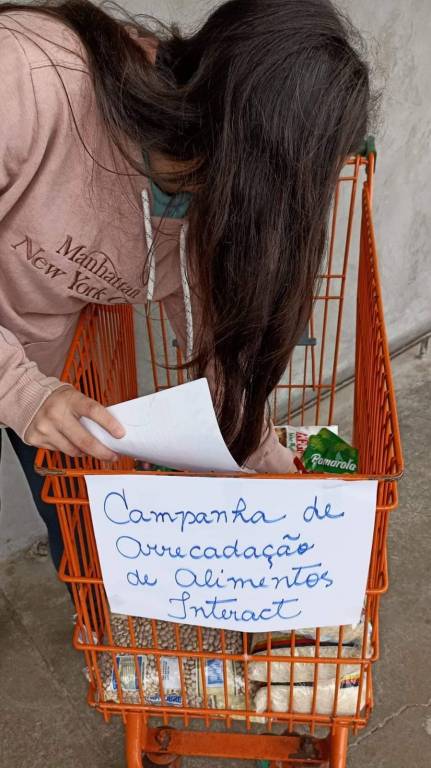 Manhattan
New York C
Pomarola
Campanha de
Arrecadação
de Alimentos
Interact